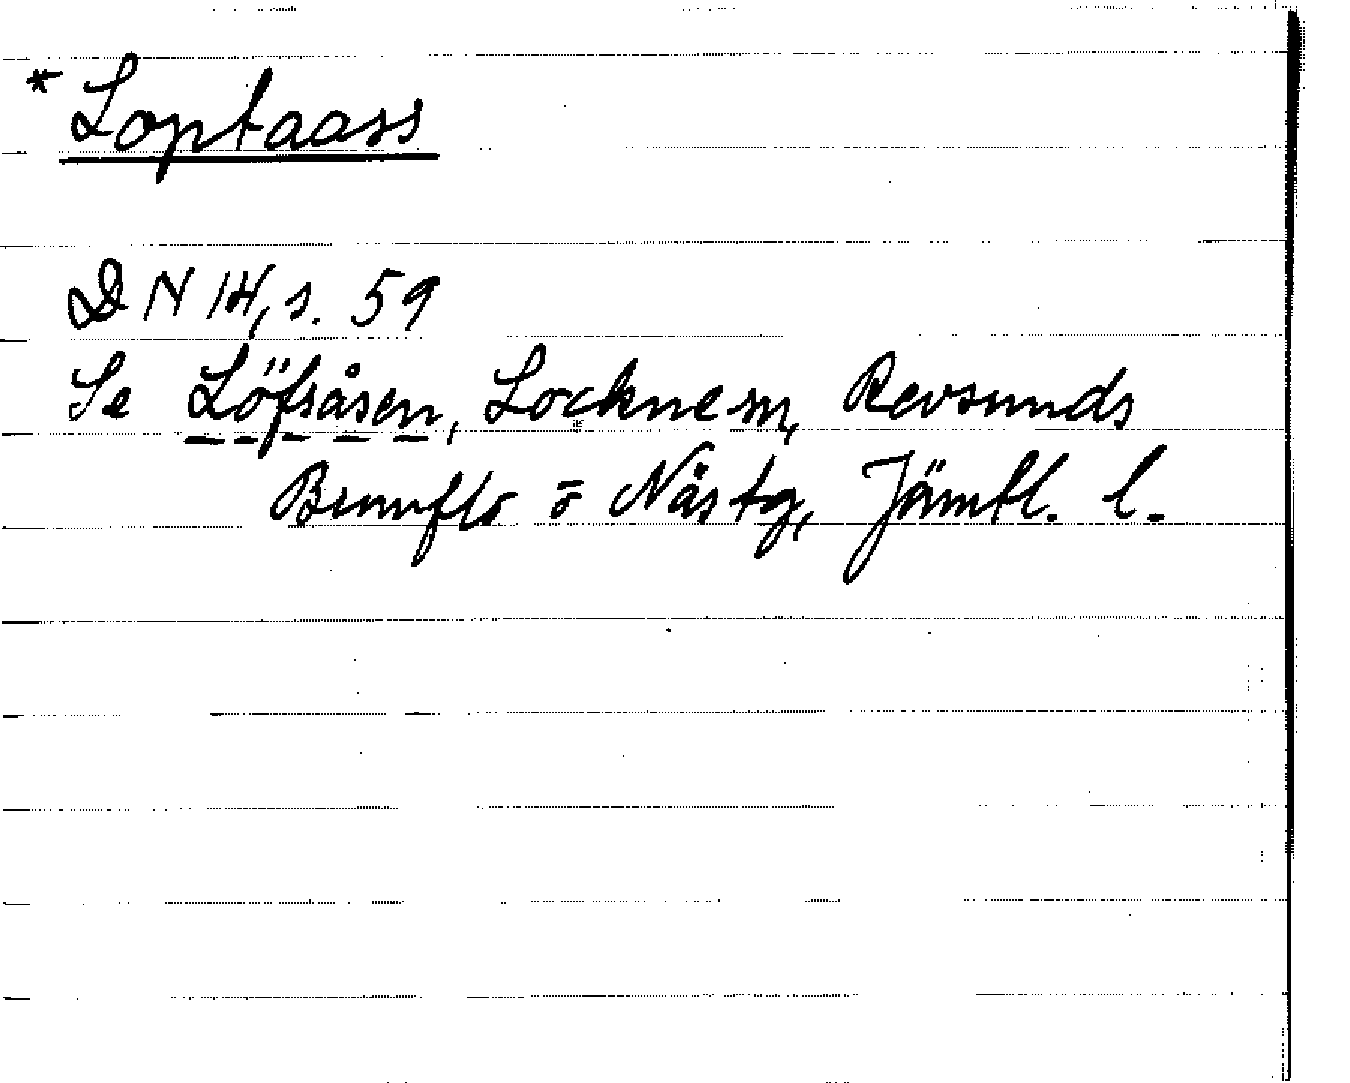 * Loptaass
DN 14, s. 59
Se Löfsåsen, Locknem, Revsunds
Brunflo o Näs tg, Jämtl. l.